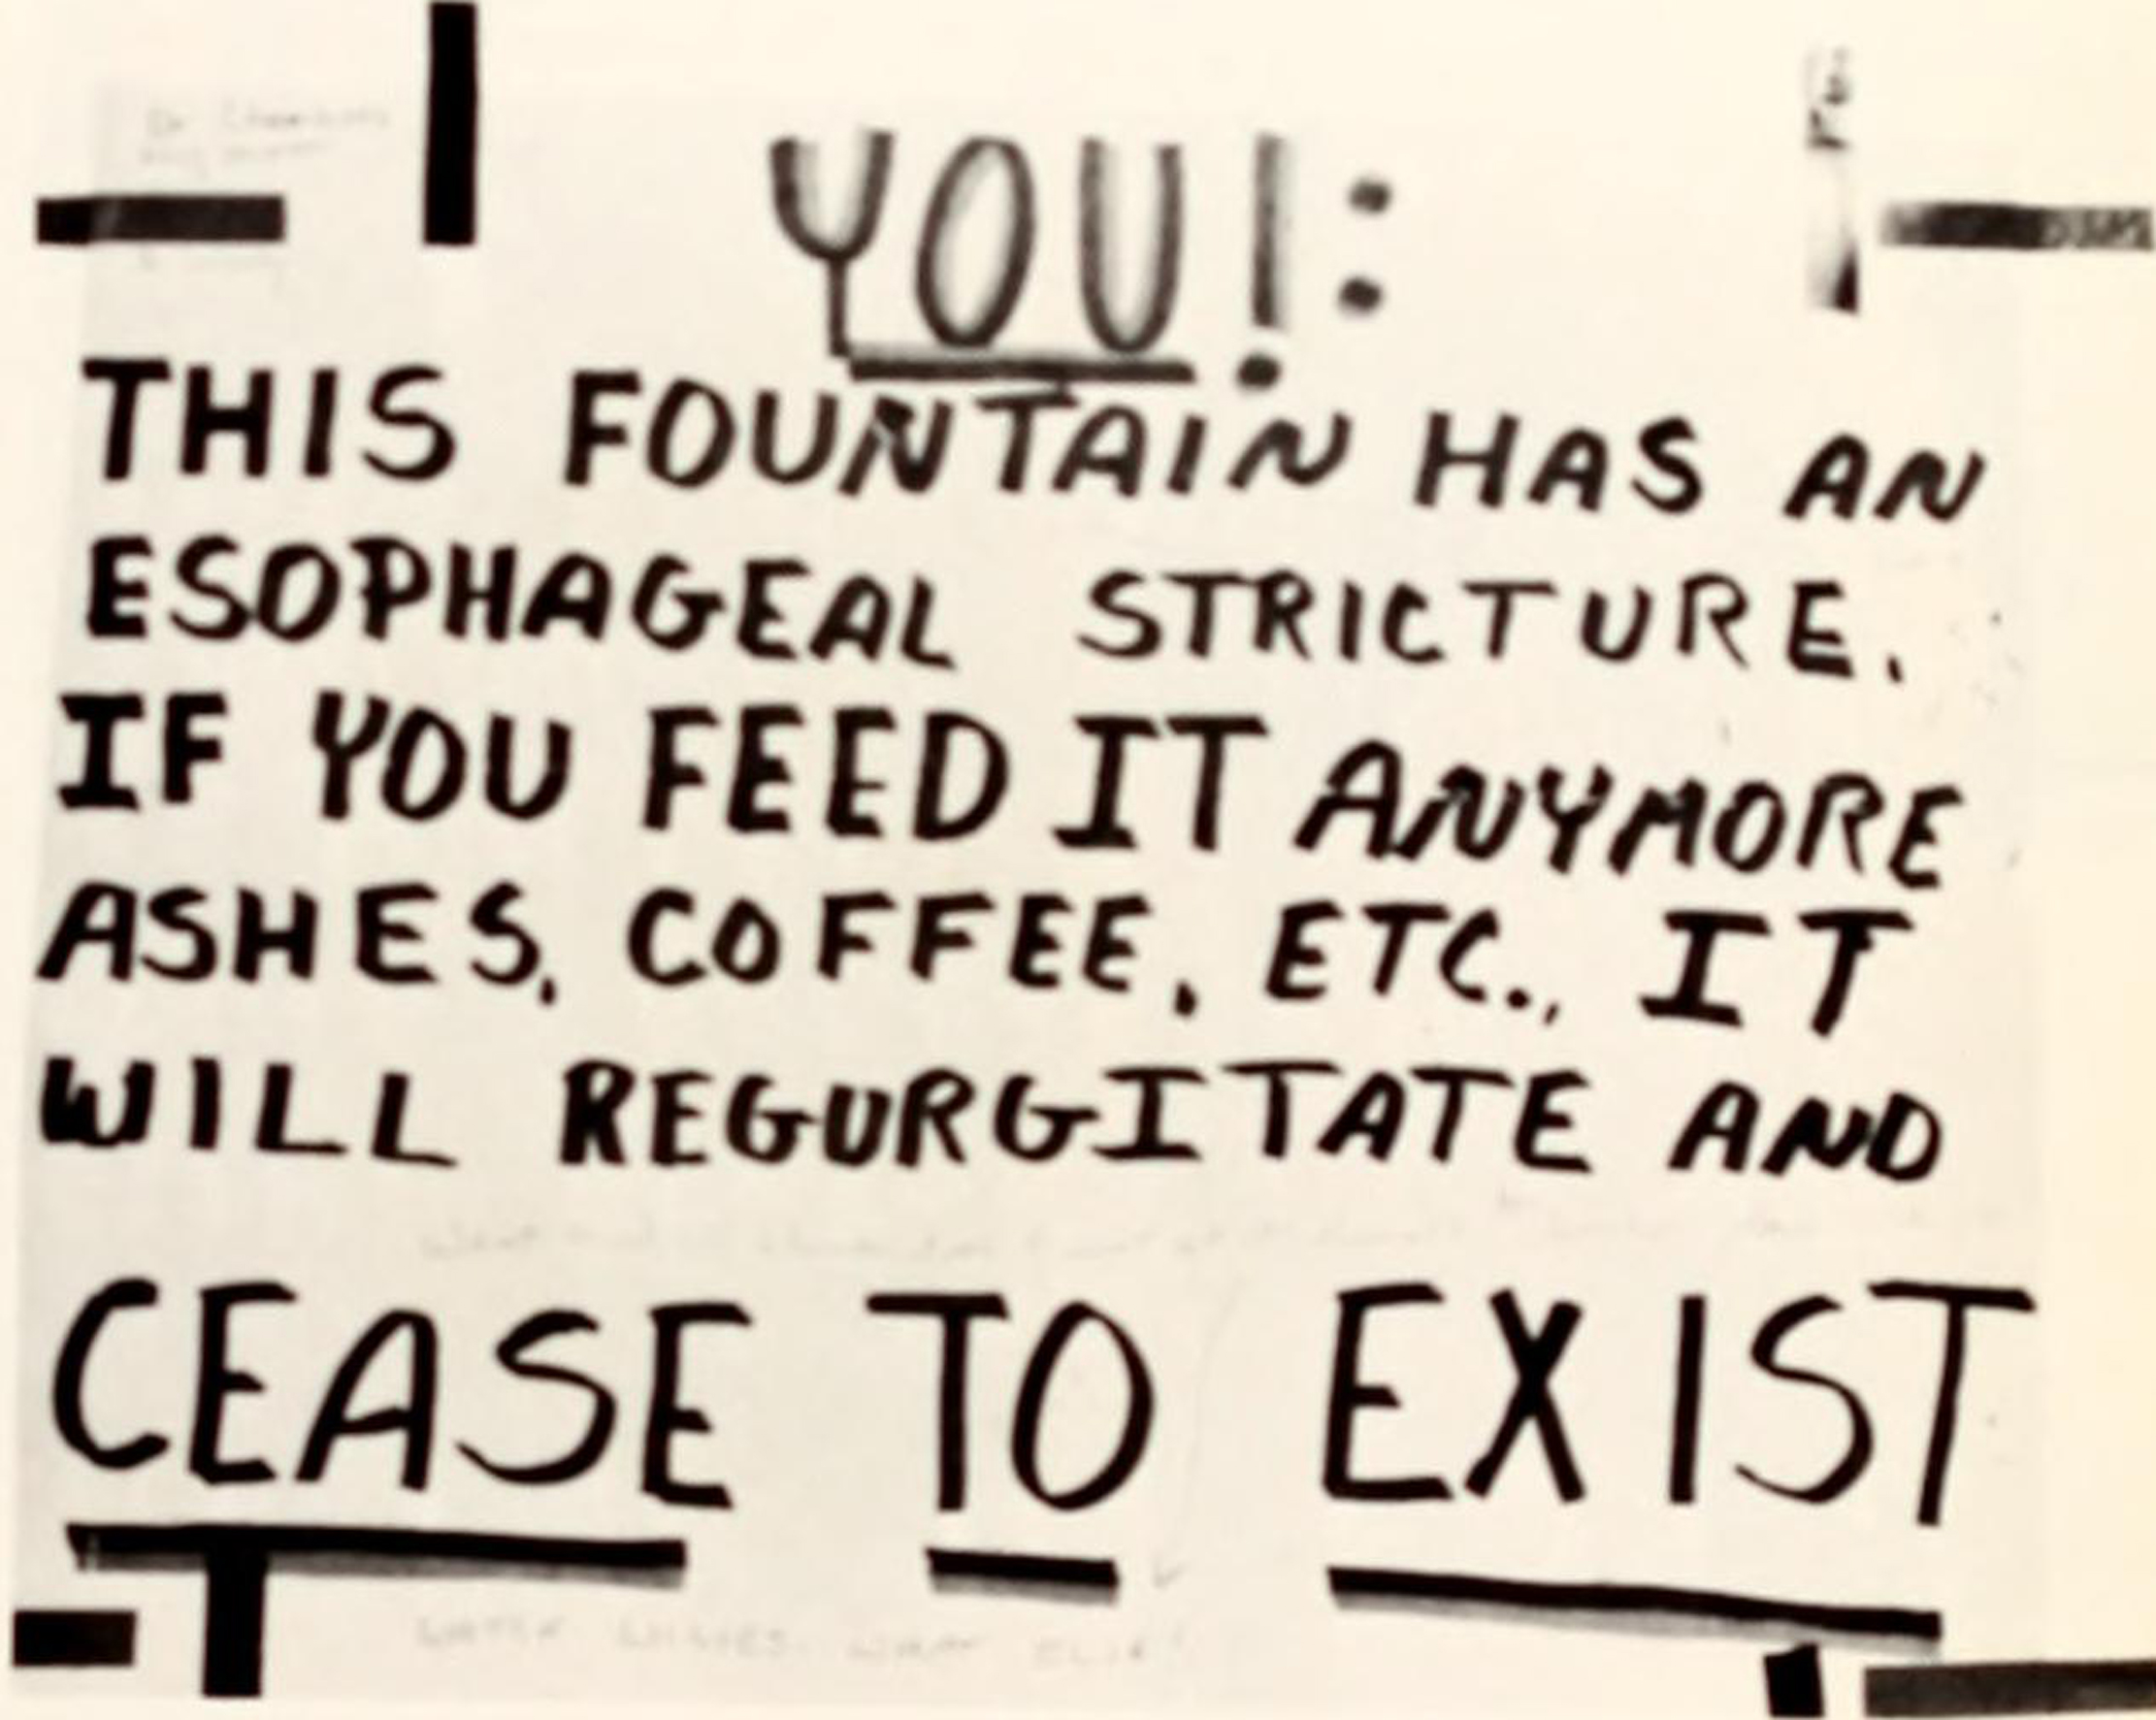 YOU!:
THIS FOUNTAIN HAS AN
ESOPHAGEAL STRICTURE.
IF YOU FEED IT ANYMORE
ASHES, COFFEE, ETC., IT
WILL REGURGITATE AND
CEASE TO EXIST